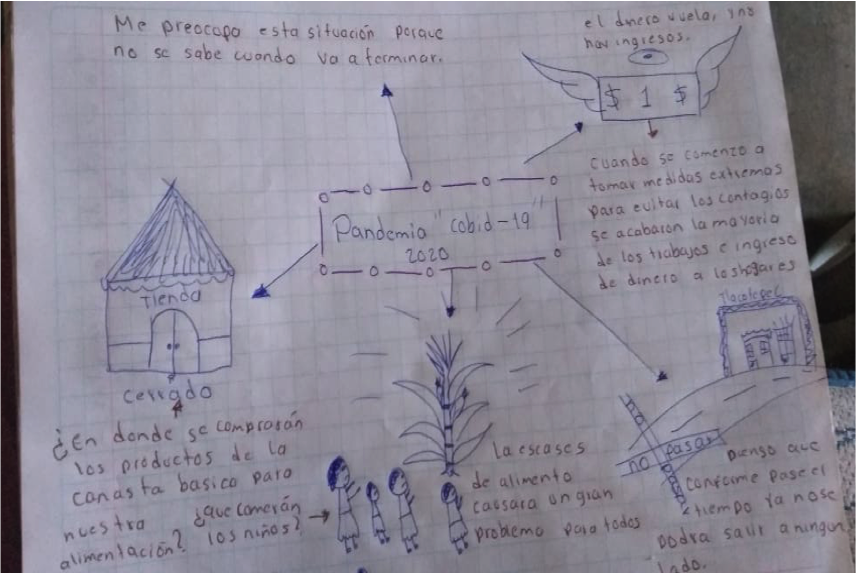 Me preocopa esta situación porque
no se sabe cuando va a terminar.
el dinero vuela, y no
hay ingresos.
$ 1 $
cuando se comenzo a
tomar medidas extremas
para evitar los contagios
se acabaron la mayoria
de los trabajos e ingreso
de dinero a los hogares
Pandemia "cobid-19"
2020
Tienda
cerrado
¿En donde se comprarán
los productos de la
canasta basica para
nuestra
alimentación?
¿que comerán
los niños?
La escases
de alimento
caussara un gran
problema para todos
Tlacotepec
no pasar
no pasar
pienso que
conforme pase el
tiempo ya no se
podra salir a ningun
lado.